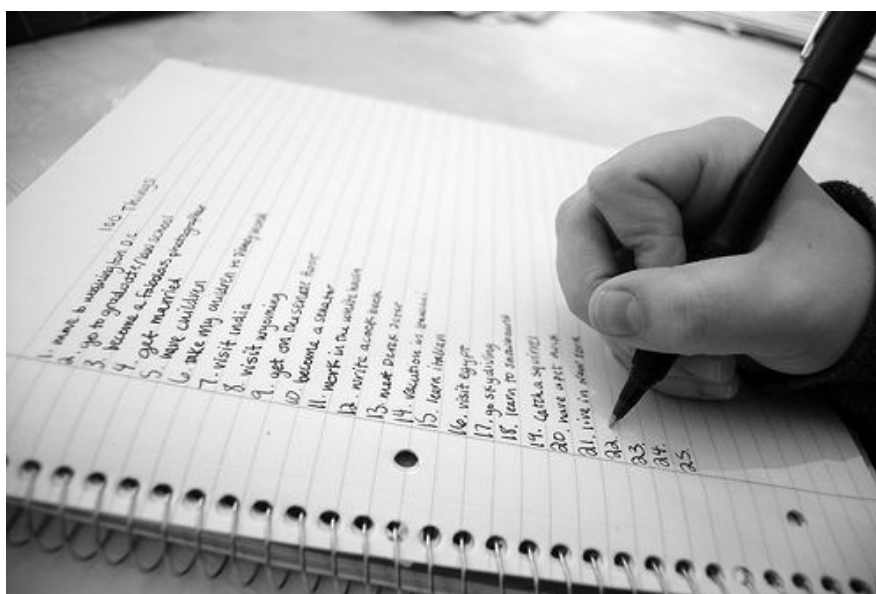 100 Things
1. move to washington D.C.
2. go to graduate/law school
3. become a fabolas photographer
4. get married
5. have children
6. take my children to Disney world
7. visit India
8. visit wyoming
9. get on the senate floor
10. become a senator
11. work in the white house
12. write a cook book
13. meet Derek Jeter
14. vacation in Hawaii
15. learn italien
16. visit egypt
17. go skydiving
18. learn to snowboard
19. Catch a squirrel
20. have a pet
21. live in New York
22.
23.
24.
25.